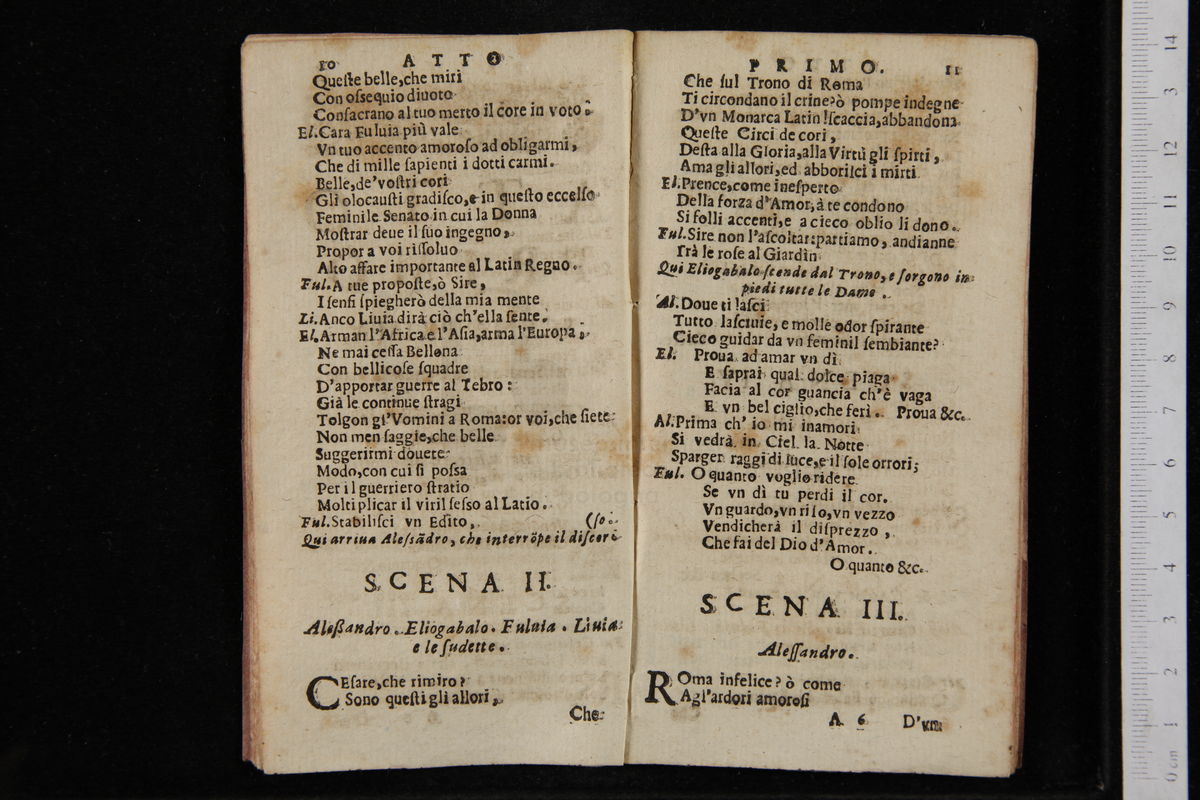 10 ATTO
Queſte belle, che miri
Con oſsequio diuoto
Conſacrano al tuo merto il core in voto.
El. Cara Fuluia più vale
Vn tuo accento amoroſo ad obligarmi,
Che di mille ſapienti i dotti carmi.
Belle, de' voſtri cori
Gli olocauſti gradiſco, e in queſto eccelſo
Feminile Senato in cui la Donna
Moſtrar deue il ſuo ingegno,
Propor a voi riſſoluo
Alto affare importante al Latin Regno.
Ful. A tue propoſte, ò Sire,
I ſenſi ſpiegherò della mia mente
Li. Anco Liuia dirà ciò ch'ella ſente.
El. Arman l'Africa e l'Aſia, arma l'Europa,
Ne mai ceſſa Bellona
Con bellicoſe ſquadre
D'apportar guerre al Tebro:
Già le continue ſtragi
Tolgon gl'Vomini a Roma: or voi, che ſiete
Non men ſaggie, che belle
Suggerirmi douete
Modo, con cui ſi poſsa
Per il guerriero ſtratio
Moltiplicar il viril ſeſso al Latio.
Ful. Stabiliſci vn Edito, (ſo.
Qui arriua Aleſsãdro, che interrõpe il diſcor-
SCENA II.
Aleßandro. Eliogabalo. Fuluia. Liuia
e le ſudette.
CEſare, che rimiro?
Sono queſti gli allori,
Che
PRIMO. 11
Che ſul Trono di Roma
Ti circondano il crine? ò pompe indegne
D'vn Monarca Latin! ſcaccia, abbandona
Queſte Circi de cori,
Deſta alla Gloria, alla Virtù gli ſpirti,
Ama gli allori, ed abboriſci i mirti.
El. Prence, come ineſperto
Della forza d'Amor, à te condono
Si folli accenti, e a cieco oblio li dono.
Ful. Sire non l'aſcoltar: partiamo, andianne
Trà le roſe al Giardin
Qui Eliogabalo ſcende dal Trono, e ſorgono in
piedi tutte le Dame.
Al. Doue ti laſci
Tutto laſciuie, e molle odor ſpirante
Cieco guidar da vn feminil ſembiante?
El. Proua ad amar vn dì
E ſaprai qual dolce piaga
Facia al cor guancia ch'è vaga
E vn bel ciglio, che ferì. Proua &c.
Al. Prima ch' io mi inamori
Si vedrà in Ciel la Notte
Sparger raggi di luce, e il ſole orrori;
Ful. O quanto voglio ridere
Se vn dì tu perdi il cor.
Vn guardo, vn riſo, vn vezzo
Vendicherà il diſprezzo,
Che fai del Dio d'Amor.
O quanto &c.
SCENA III.
Aleſſandro.
ROma infelice? ò come
Agl'ardori amoroſi
A 6 D'vn